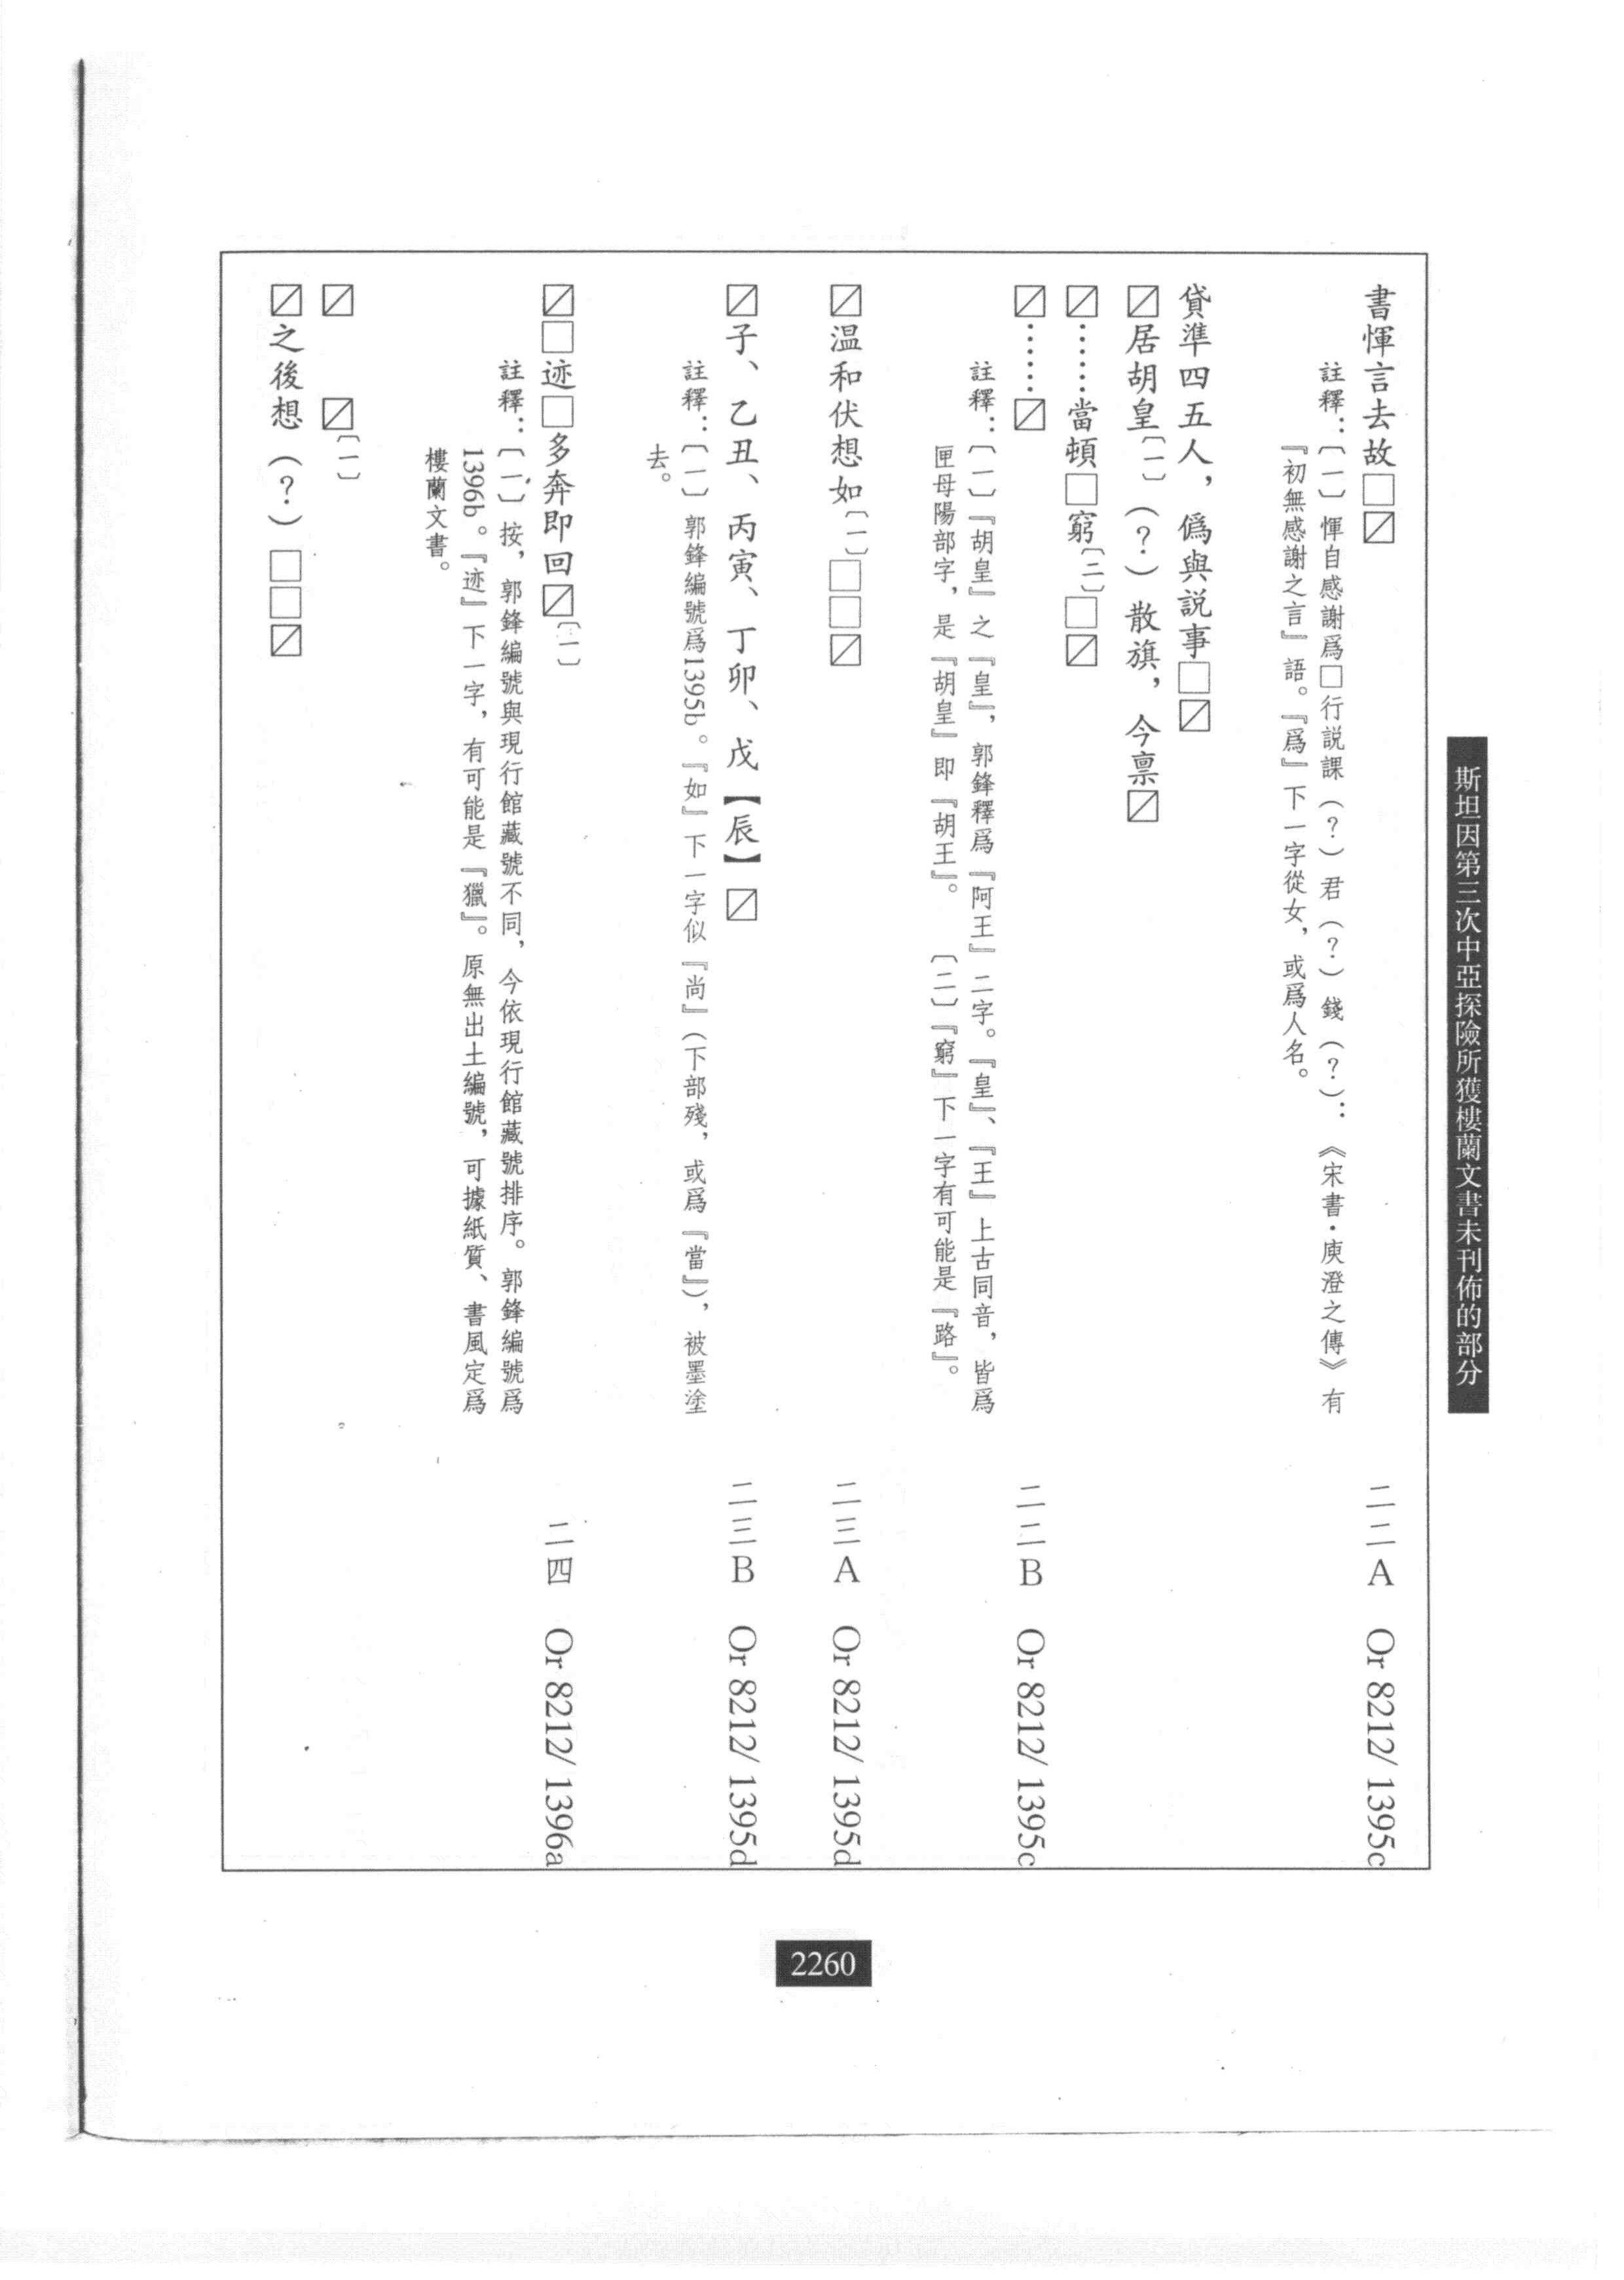 斯坦因第三次中亞探險所獲樓蘭文書未刊佈的部分
書惲言去故□〼 二二A Or 8212/ 1395c
註釋：〔一〕惲自感謝爲□行説課（？）君（？）錢（？）：《宋書·庾澄之傳》有
『初無感謝之言』語。『爲』下一字從女，或爲人名。
貸準四五人，僞與説事□〼
〼居胡皇〔一〕（？）散旗，今禀〼
〼……當頓□窮〔二〕□〼
〼……〼 二二B Or 8212/ 1395c
註釋：〔一〕『胡皇』之『皇』，郭鋒釋爲『阿王』二字。『皇』、『王』上古同音，皆爲
匣母陽部字，是『胡皇』即『胡王』。 〔二〕『窮』下一字有可能是『路』。
〼温和伏想如〔一〕□□〼 二三A Or 8212/ 1395d
〼子、乙丑、丙寅、丁卯、戊【辰】〼 二三B Or 8212/ 1395d
註釋：〔一〕郭鋒編號爲1395b。『如』下一字似『尚』（下部殘，或爲『當』），被墨塗
去。
〼□迹□多奔即回〼〔一〕 二四 Or 8212/ 1396a
註釋：〔一〕按，郭鋒編號與現行館藏號不同，今依現行館藏號排序。郭鋒編號爲
1396b。『迹』下一字，有可能是『獵』。原無出土編號，可據紙質、書風定爲
樓蘭文書。
〼 〼〔一〕
〼之後想（？）□□〼
2260